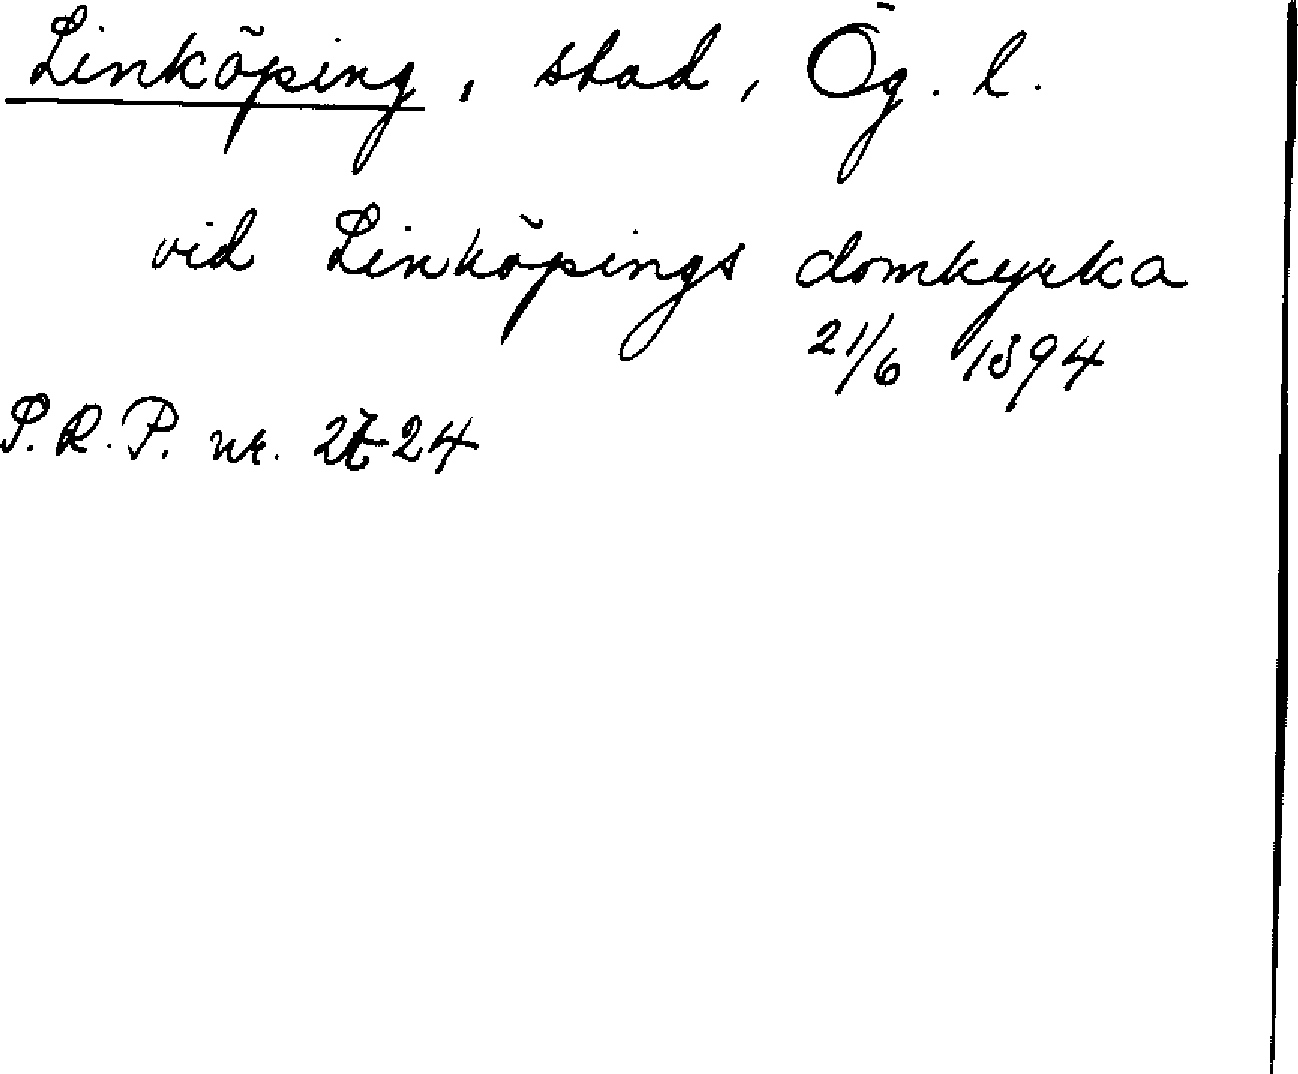 Linköping, stad, Ög. l.
vid Linköpings domkyrka
21/6 1894
P.R.P. nr.